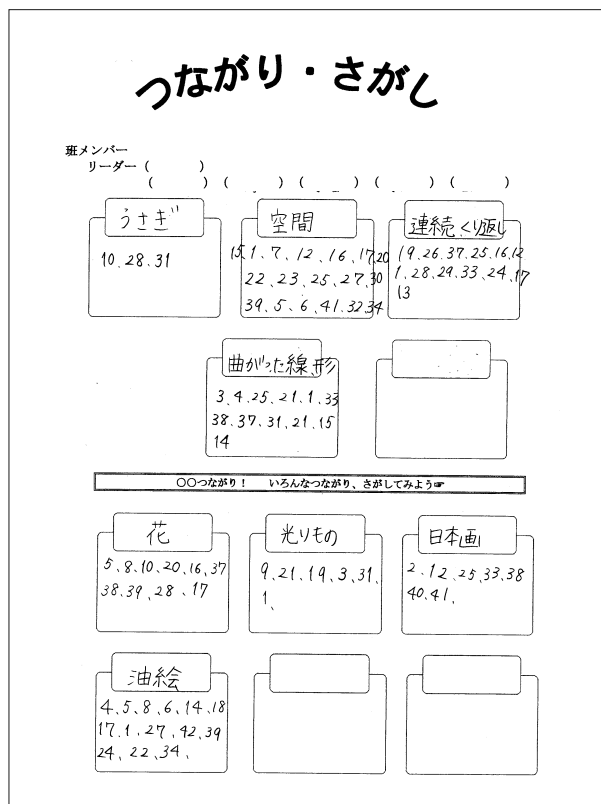 つながり・さがし
班メンバー
リーダー (　　　)
(　　　) (　　　) (　　　) (　　　) (　　　)
うさぎ
10.28.31
空間
15.1.7、12、16、17.20
22、23、25、27、30
39、5、6、41.32.34
連続くり返し
19.26.37.25.16.12
1.28.29.33、24、17
13
曲がった線、形
3、4.25、21.1.33
38.37.31、21.15
14
○○つながり！　いろんなつながり、さがしてみよう☞
花
5、8.10、20、16、37
38.39、28、17
光りもの
9.21.19、3、31、
1、
日本画
2、12、25、33、38
40、41、
油絵
4、5、8、6、14、18
17.1、27、42、39
24、22、34、